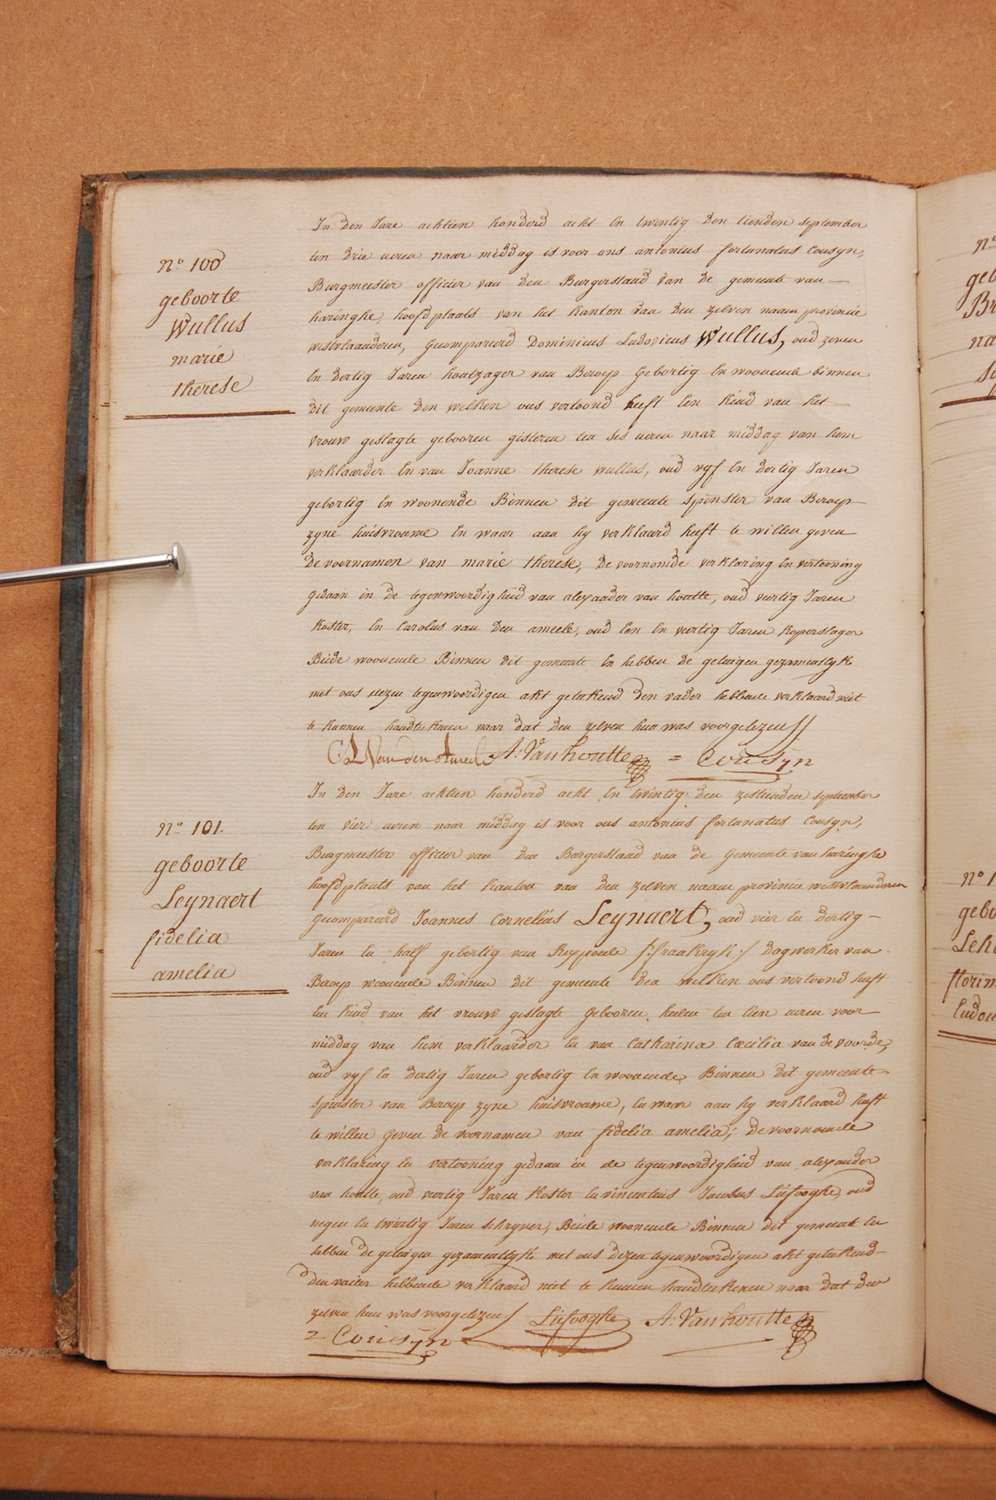 n.° 100
geboorte
Wullus
marie
therese
In den Jare achtien honderd acht En twintig den tienden september
ten drie ueren naar middag is voor ons antonius fortunatus Cousyn,
Burgmeester officier van den Burgerstand van de gemeente van
haringhe, hoofdplaets van het kanton van den zelven naam provincie
westvlaanderen, Gecompareerd Dominicus Ludovicus Wullus, oud zeven
En dertig Jaren houtzager van Beroep Gebortig En woonende binnen
dit gemeente den welken ons vertoond heeft Een kind van het
vrouw geslagte gebooren gisteren ten ses ueren naar middag van hem
verklaarder En van Joanne therese wullus, oud vyf En dertig Jaren
gebortig En woonende Binnen dit gemeente spinster van Beroep
zyne huisvrouwe En waar aan hy verklaard heeft te willen geven
de voornamen van marie therese, de voornomde verklaring En vertooning
gedaan in de tegenwoordigheid van alexander van houtte, oud veertig Jaren
koster, En Carolus van den ameele, oud Een En veertig Jaren koperslager
Beide woonende Binnen dit gemeente En hebben de getuigen gezamentlyk
met ons dezen tegenwoordigen akt getekend den vader hebbende verklaard niet
te kunnen handtekenen naar dat den zelven hun was voorgelezen //
C. L. Van den Ameele A: Vanhoutte = Cousyn
n.° 101.
geboorte
Leynaert
fidelia
amelia
In den Jare achtien honderd acht En twintig den zestienden september
ten vier ueren naar middag is voor ons antonius fortunatus Cousyn,
Burgmeester officier van den Burgerstand van de Gemeente van haringhe
hoofdplaets van het kanton van den zelven naam provincie westvlaanderen
Gecompareerd Joannes Cornelius Leynaert, oud vier En dertig
Jaren En half gebortig van Rexpoede /: frankryk :/ dagwerker van
Beroep woonende Binnen dit gemeente den welken ons vertoond heeft
Een kind van het vrouw geslagte gebooren heden ten tien ueren voor
middag van hem verklaarder En van Catharina Cæcilia van de voorde,
oud vyf En dertig Jaren gebortig En woonende, Binnen dit gemeente
spinster van Beroep zyne huisvrouwe, En waar aan hy verklaard heeft
te willen geven de voornamen van fidelia amelia; de voornomde
verklaring En vertooning gedaan in de tegenwoordigheid van alexander
van houtte, oud veertig Jaren koster En vincentius Jacobus Liefooghe, oud
negen En twintig Jaren schryver, Beide woonende Binnen dit gemeente En
hebben de getuigen gezamentlyk met ons dezen tegenwoordigen akt getekend
den vader hebbende verklaard niet te kunnen handtekenen naar dat den
zelven hun was voorgelezen / Liefooghe A: Vanhoutte
= Cousyn